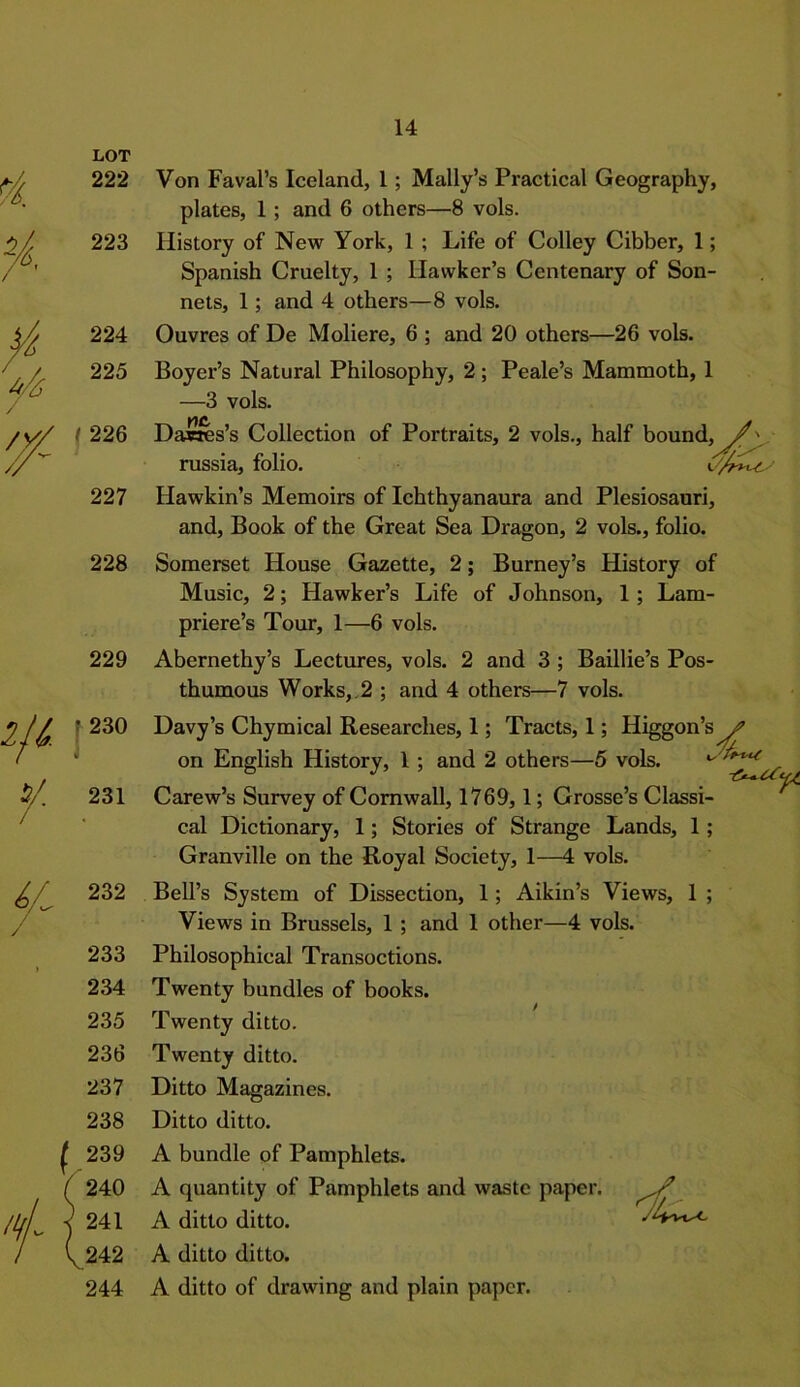 14
LOT
222 Von Faval's Iceland, 1 ; Mally's Practical Geography,
plates, 1 ; and 6 others—8 vols.
223 History of New York, 1 ; Life of Colley Cibber, 1 ;
Spanish Cruelty, 1 ; Hawker's Centenary of Son-
nets, 1 ; and 4 others—8 vols.
224 Ouvres of De Moliere, 6 ; and 20 others—26 vols.
225 Boyer's Natural Philosophy, 2 ; Peale's Mammoth, 1
—3 vols.
226 Collection of Portraits, 2 vols., half bound,
russia, folio.
227 Hawkin's Memoirs of Ichthyanaura and Plesiosauri,
and, Book of the Great Sea Dragon, 2 vols., folio.
228 Somerset House Gazette, 2 ; Burney's History of
Music, 2 ; Hawker's Life of Johnson, 1 ; Lam-
priere's Tour, 1—6 vols.
229 Abernethy's Lectures, vols. 2 and 3 ; Baillie's Pos-
thumous Works, 2 ; and 4 others—7 vols.
2/6 230 Davy's Chymical Researches, 1 ; Tracts, 1 ; Higgon's
on English History, 1 ; and 2 others—5 vols.
231 Carew's Survey of Cornwall, 1769, 1 ; Grosse's Classi-
cal Dictionary, 1 ; Stories of Strange Lands, 1 ;
Granville on the Royal Society, 1—4 vols.
232 Bell's System of Dissection, 1 ; Aikin's Views, 1 ;
Views in Brussels, 1 ; and 1 other—4 vols.
233 Philosophical Transoctions.
234 Twenty bundles of books.
235 Twenty ditto.
236 Twenty ditto.
237 Ditto Magazines.
238 Ditto ditto.
239 A bundle of Pamphlets.
240 A quantity of Pamphlets and waste paper.
241 A ditto ditto.
242 A ditto ditto.
244 A ditto of drawing and plain paper.